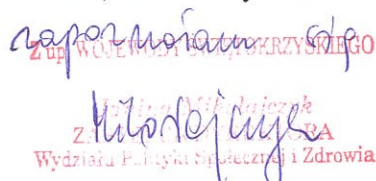 zapoznałam się
Z up. WOJEWODY ŚWIĘTOKRZYSKIEGO
Mikołajczyk
ZASTĘPCA DYREKTORA
Wydziału Polityki Społecznej i Zdrowia